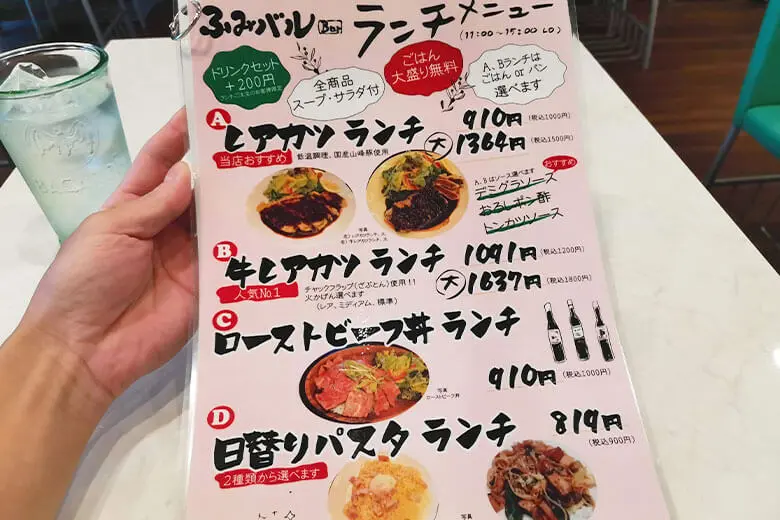 ふみバル Bar ランチメニュー
(11:00〜15:00 LO)
ドリンクセット
+200円
全商品
スープ・サラダ付
ごはん
大盛り無料
A、Bランチは
ごはん or パン
選べます
A レアカツ ランチ 910円 (税込1000円)
大 1364円 (税込1500円)
当店おすすめ 低温調理、国産山峰豚使用
A、Bはソース選べます おすすめ
デミグラソース
おろしポン酢
トンカツソース
写真
B 牛レアカツ ランチ 1091円 (税込1200円)
大 1637円 (税込1800円)
人気No1 チャックフラップ(ざぶとん)使用!!
火かげん選べます
(レア、ミディアム、標準)
C ローストビーフ丼 ランチ
910円 (税込1000円)
写真
ローストビーフ丼
D 日替りパスタ ランチ 819円
(税込900円)
2種類から選べます
写真